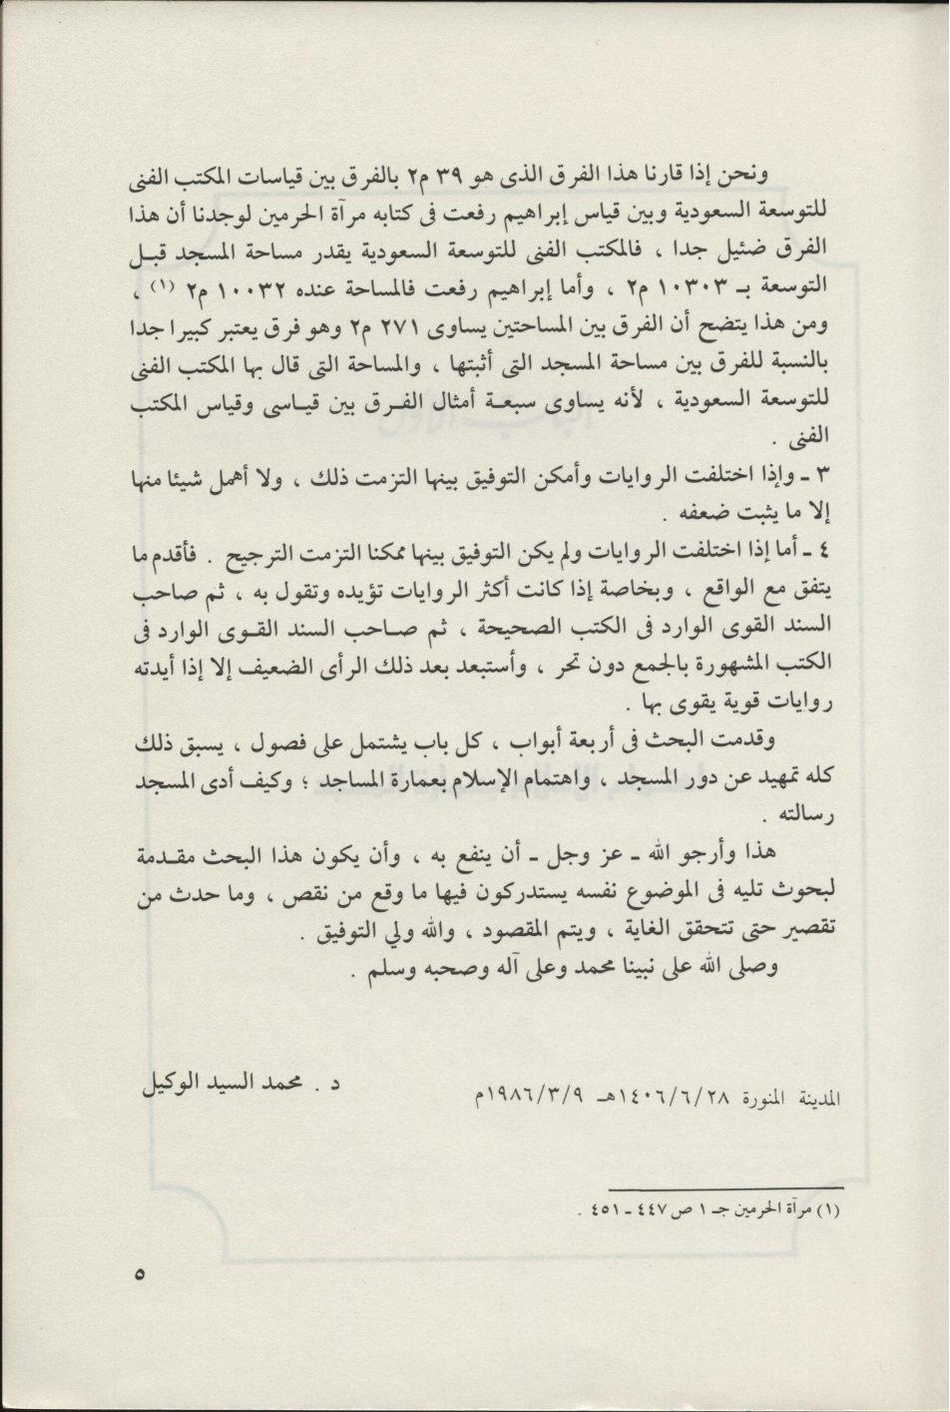 ونحن إذا قارنا هذا الفرق الذى هو ٣٩ م٢ بالفرق بين قياسات المكتب الفنى
للتوسعة السعودية وبين قياس إبراهيم رفعت فى كتابه مرآة الحرمين لوجدنا أن هذا
الفرق ضئيل جدا ، فالمكتب الفنى للتوسعة السعودية يقدر مساحة المسجد قبـل
التوسعة بـ ١٠٣٠٣ م٢ ، وأما إبراهيم رفعت فالمساحة عنده ١٠٠٣٢ م٢ (١) ،
ومن هذا يتضح أن الفرق بين المساحتين يساوى ٢٧١ م٢ وهو فرق يعتبر كبيرا جدا
بالنسبة للفرق بين مساحة المسجد التى أثبتها ، والمساحة التى قال بها المكتب الفنى
للتوسعة السعودية ، لأنه يساوى سبعـة أمثال الفـرق بين قيـاسى وقياس المكتب
الفنى .
٣ ـ وإذا اختلفت الروايات وأمكن التوفيق بينها التزمت ذلك ، ولا أهمل شيئا منها
إلا ما يثبت ضعفه .
٤ ـ أما إذا اختلفت الروايات ولم يكن التوفيق بينها ممكنا التزمت الترجيح . فأقدم ما
يتفق مع الواقع ، وبخاصة إذا كانت أكثر الروايات تؤيده وتقول به ، ثم صاحب
السند القوى الوارد فى الكتب الصحيحة ، ثم صـاحب السند القـوى الوارد فى
الكتب المشهورة بالجمع دون تحر ، وأستبعد بعد ذلك الرأى الضعيف إلا إذا أيدته
روايات قوية يقوى بها .
وقدمت البحث فى أربعة أبواب ، كل باب يشتمل على فصول ، يسبق ذلك
كله تمهيد عن دور المسجد ، واهتمام الإسلام بعمارة المساجد ؛ وكيف أدى المسجد
رسالته .
هذا وأرجو الله ـ عز وجل ـ أن ينفع به ، وأن يكون هذا البحث مقـدمة
لبحوث تليه فى الموضوع نفسه يستدركون فيها ما وقع من نقص ، وما حدث من
تقصير حتى تتحقق الغاية ، ويتم المقصود ، والله ولي التوفيق .
وصلى الله على نبينا محمد وعلى آله وصحبه وسلم .
المدينة المنورة ١٤٠٦/٦/٢٨هـ ١٩٨٦/٣/٩م
د . محمد السيد الوكيل
(١) مرآة الحرمين جـ ١ ص ٤٤٧ ـ ٤٥١ .
٥